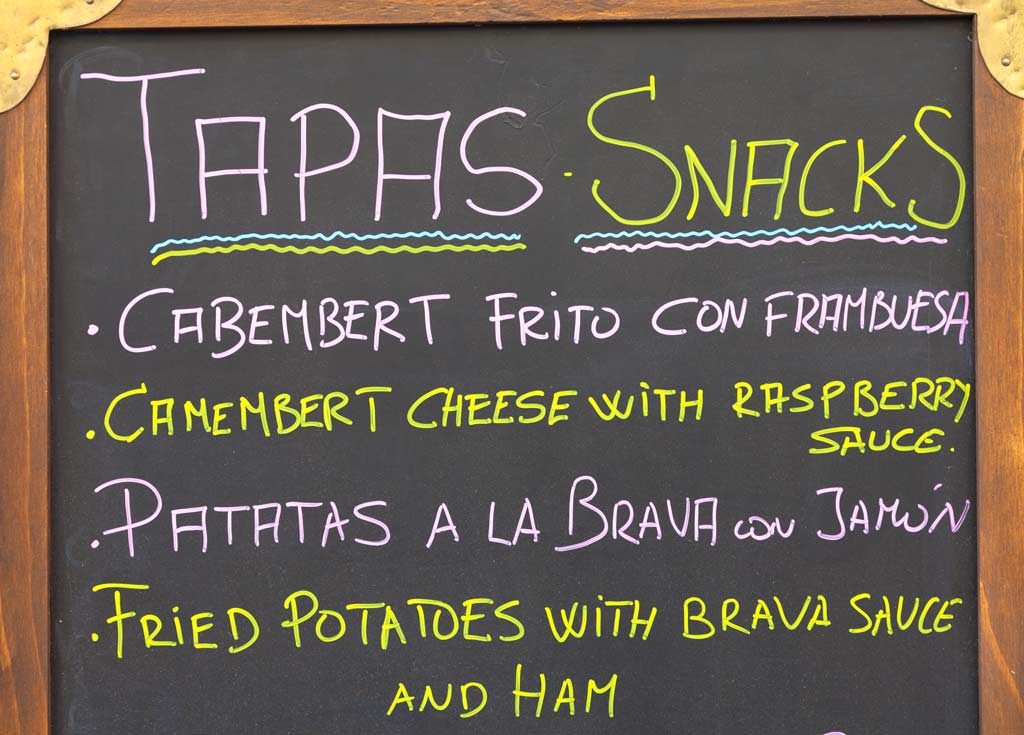 TAPAS · SNACKS
· CABEMBERT FRITO CON FRAMBUESA
. CAMEMBERT CHEESE WITH RASPBERRY
SAUCE.
. PATATAS A LA BRAVA CON JAMÓN
. FRIED POTATOES WITH BRAVA SAUCE
AND HAM